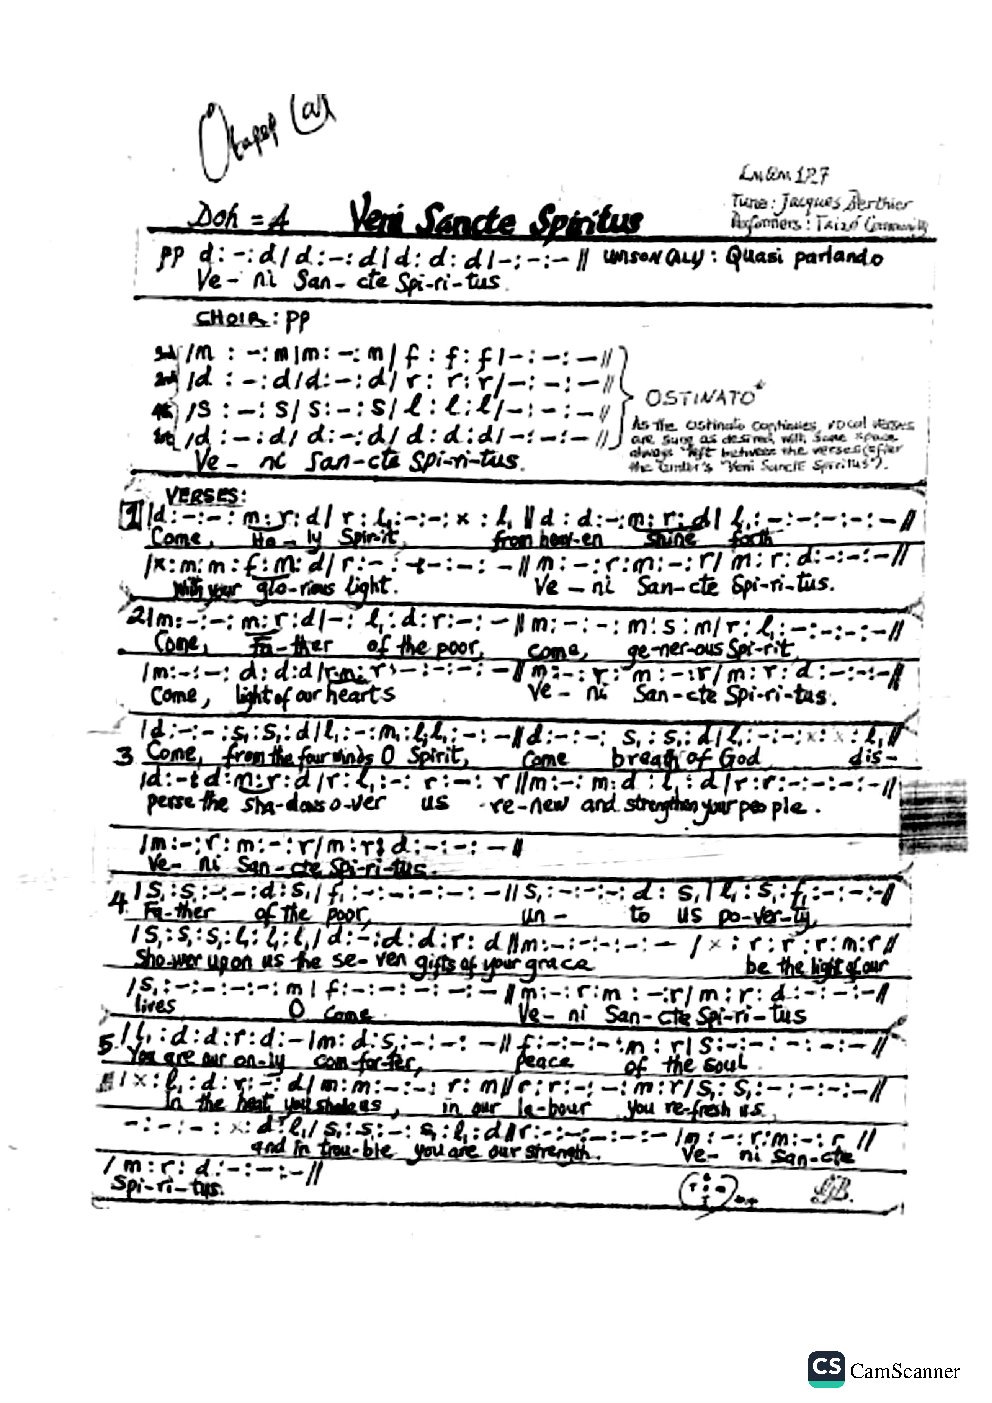 Doh = A Veni Sancte Spiritus
Tune: Jacques Berthier
Performers: Taizé Community
pp d:-:d/d:-:d/d:d:d/-:-:-// UNISON(ALY): Quasi parlando
Ve-ni San-cte Spi-ri-tus.
CHOIR: PP
/m:-:m/m:-:m/f:f:f/-:-:-//
/d:-:d/d:-:d/r:r:r/-:-:-//
/s:-:s/s:-:s/l:l:l/-:-:-//
/d:-:d/d:-:d/d:d:d/-:-:-//
Ve-ni San-cte Spi-ri-tus.
OSTINATO*
As the Ostinato continues, vocal verses
are sung as desired with some space
always left between the verses (after
the Cantor's "Veni Sancte Spiritus").
VERSES:
1 /d:-:-:m:r:d/r:l₁:-:-:x:l₁//d:d:-:m:r:d/l₁:-:-:-:-:-//
Come, Ho-ly Spirit, from heav-en shine forth
/x:m:m:f:m:d/r:-:-:-:-:-//m:-:r:m:-:r/m:r:d:-:-:-//
With your glo-rious light. Ve-ni San-cte Spi-ri-tus.
2 /m:-:-:m:r:d/-:l₁:d:r:-:-//m:-:-:m:s:m/r:l₁:-:-:-:-//
Come, Fa-ther of the poor, come, ge-ner-ous Spi-rit
/m:-:-:d:d:d/r:m:r:-:-:-//m:-:r:m:-:r/m:r:d:-:-:-//
Come, light of our hearts Ve-ni San-cte Spi-ri-tus.
3 /d:-:-:s₁:s₁:d/l₁:-:m₁:l₁:l₁:-:-//d:-:-:s₁:s₁:d/l₁:-:-:x:x:l₁/
Come, from the four winds O Spirit, Come breath of God dis-
/d:-:d:m:r:d/r:l₁:-:r:-:r//m:-:m:d:l₁:d/r:r:-:-:-:-//
perse the sha-dows o-ver us re-new and strengthen your people.
/m:-:r:m:-:r/m:r:d:-:-:-//
Ve-ni San-cte Spi-ri-tus.
4 /s₁:s₁:-:-:d:s₁/f₁:-:-:-:-:-//s₁:-:-:-:d:s₁/l₁:s₁:f₁:-:-:-//
Fa-ther of the poor, un-to us po-ver-ty,
/s₁:s₁:s₁:l₁:l₁:l₁/d:-:d:d:r:d//m:-:-:-:-:-/x:r:r:r:m:r//
Sho-wer upon us the se-ven gifts of your grace be the light of our
/s₁:-:-:-:-:m/f:-:-:-:-:-//m:-:r:m:-:r/m:r:d:-:-:-//
lives O Come Ve-ni San-cte Spi-ri-tus
5 /l₁:d:d:r:d:-/m:d:s₁:-:-:-//f:-:-:-:m:r/s:-:-:-:-:-//
You are our on-ly com-for-ter, Peace of the soul
/x:l₁:d:r:-:d/m:m:-:-:r:m//r:r:-:-:m:r/s₁:s₁:-:-:-:-//
In the heat you shade us, in our la-bour you re-fresh us,
-:-:-:x:d:l₁/s₁:s₁:-:s₁:l₁:d//r:-:-:-:-:-/m:-:r:m:-:r//
and in trou-ble you are our strength. Ve-ni San-cte
/m:r:d:-:-:-//
Spi-ri-tus.
CS CamScanner